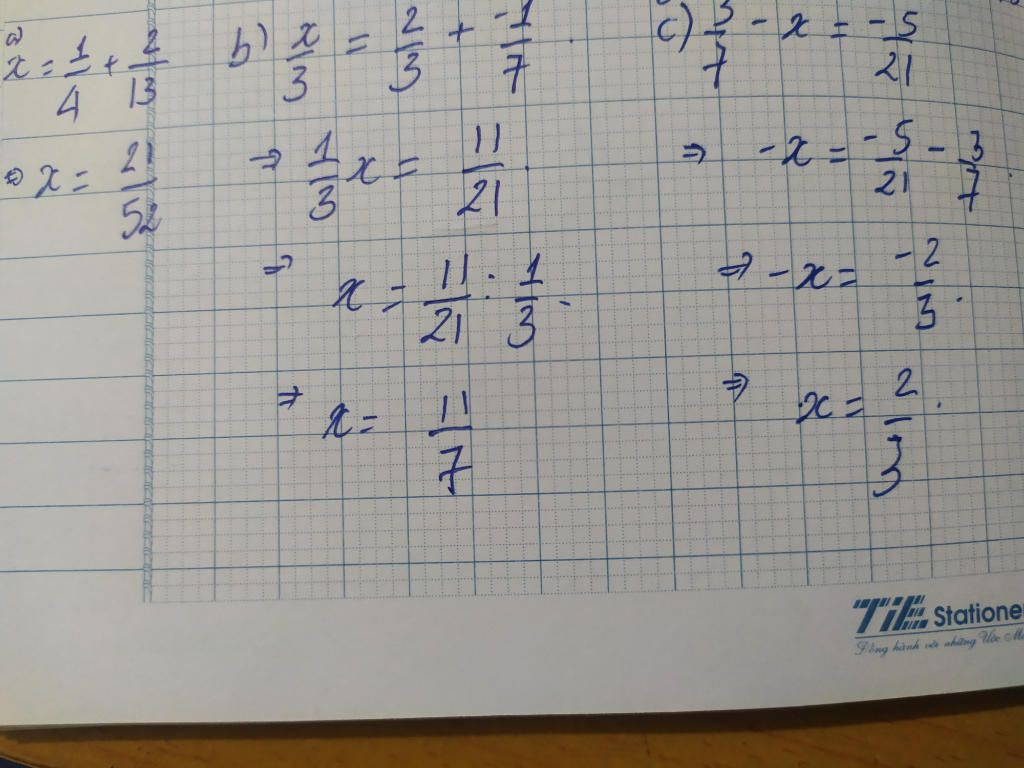 a)
x = 1/4 + 2/13
⇒ x = 21/52
b) x/3 = 2/3 + -1/7.
⇒ 1/3 x = 11/21.
⇒ x = 11/21 . 1/3.
⇒ x = 11/7
c) 3/7 - x = -5/21
⇒ -x = -5/21 - 3/7.
⇒ -x = -2/3.
⇒ x = 2/3.
TiE Statione
Đồng hành với những Ước M